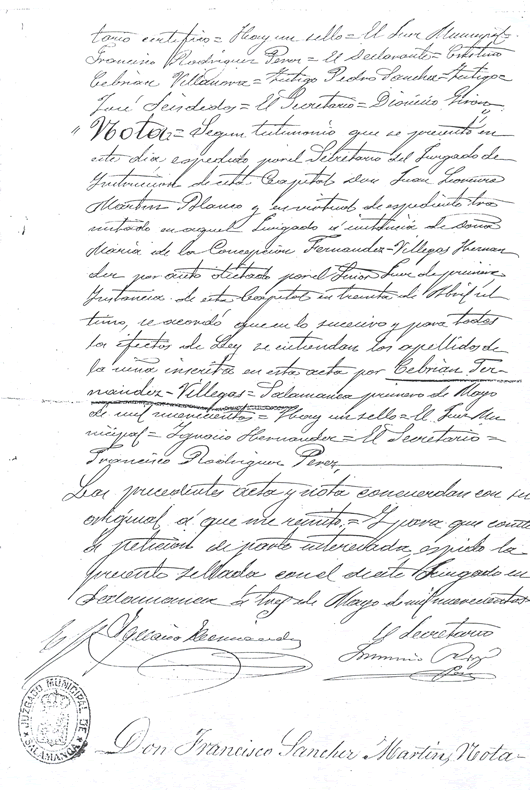 tario certifico = Hay un sello = El Juez Municipal =
Francisco Rodriguez Perez = El declarante = Cristino
Cebrián Villanova = Testigo Pedro Sanchez = Testigo =
José = El Secretario = Dionicio
" Nota = Segun testimonio que se presentó en
este dia expedido por el Secretario del Juzgado de
Instruccion de esta Capital Don Juan
Martin Blanco y en virtud de expediente tra
mitado en aquel Juzgado á instancia de doña
Maria de la Concepcion Fernandez-Villegas Hernan
dez por auto dictado por el Señor Juez de primera
Instancia de esta Capital en treinta de Abril úl
timo, se acordó que en lo sucesivo y para todos
los efectos de Ley se entiendan los apellidos de
la niña inscrita en esta acta por Cebrián Fer-
nandez-Villegas = Salamanca primero de Mayo
de mil novecientos = Hay un sello = El Juez Mu-
nicipal = Ignacio Hernandez = El Secretario =
Francisco Rodriguez Perez
Las precedentes acta y nota concuerdan con su
original á que me remito. = Y para que conste
á peticion de parte interesada, expido la
presente sellada con el de este Juzgado en
Salamanca á tres de Mayo de mil novecientos
Ignacio Hernandez
El Secretario
JUZGADO MUNICIPAL DE SALAMANCA
Don Francisco Sanchez Martin, Nota-